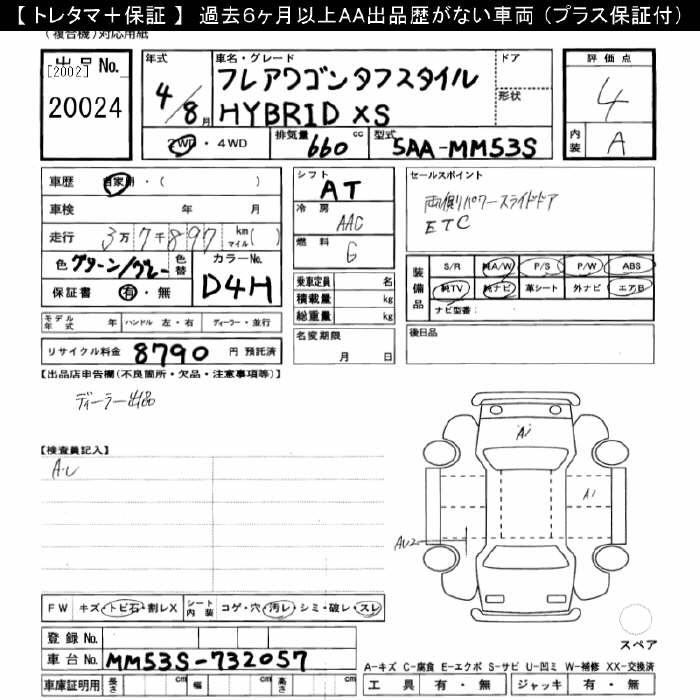 【 トレタマ＋保証 】 過去6ヶ月以上AA出品歴がない車両 (プラス保証付)
(複合機)対応用紙
出品No.
[2002]
20024
年式
4/8月
車名・グレード
フレアワゴンタフスタイル
HYBRID XS
ドア
形状
評価点
4
内装
A
2WD・4WD
排気量
660 cc
型式
5AA-MM53S
車歴
自家用・( )
車検 年 月
走行 3万7千897 km マイル( )
色 グリーン/グレー
色替
カラーNo.
D4H
保証書 有・無
シフト
AT
冷房
AAC
燃料
G
乗車定員 名
積載量 kg
総重量 kg
名変期限
月 日
セールスポイント
両側パワースライドドア
ETC
装備品
S/R 純A/W P/S P/W ABS
純TV 純ナビ 革シート 外ナビ エアB
ナビ型番:
後日品
モデル年式 年 ハンドル 左・右 ディーラー・並行
リサイクル料金 8790 円 預託済
【出品店申告欄(不良箇所・欠品・注意事項等)】
ディーラー出品
【検査員記入】
A・U
A1
A1
AU2
FW キズ・トビ石・割レX シート内装 コゲ・穴・汚レ・シミ・破レ・スレ
登録No.
車台No. MM53S-732057
車庫証明用 長さ cm 幅 cm 高さ cm
スペア
A-キズ C-腐食 E-エクボ S-サビ U-凹ミ W-補修 XX-交換済
工具 有・無 ジャッキ 有・無